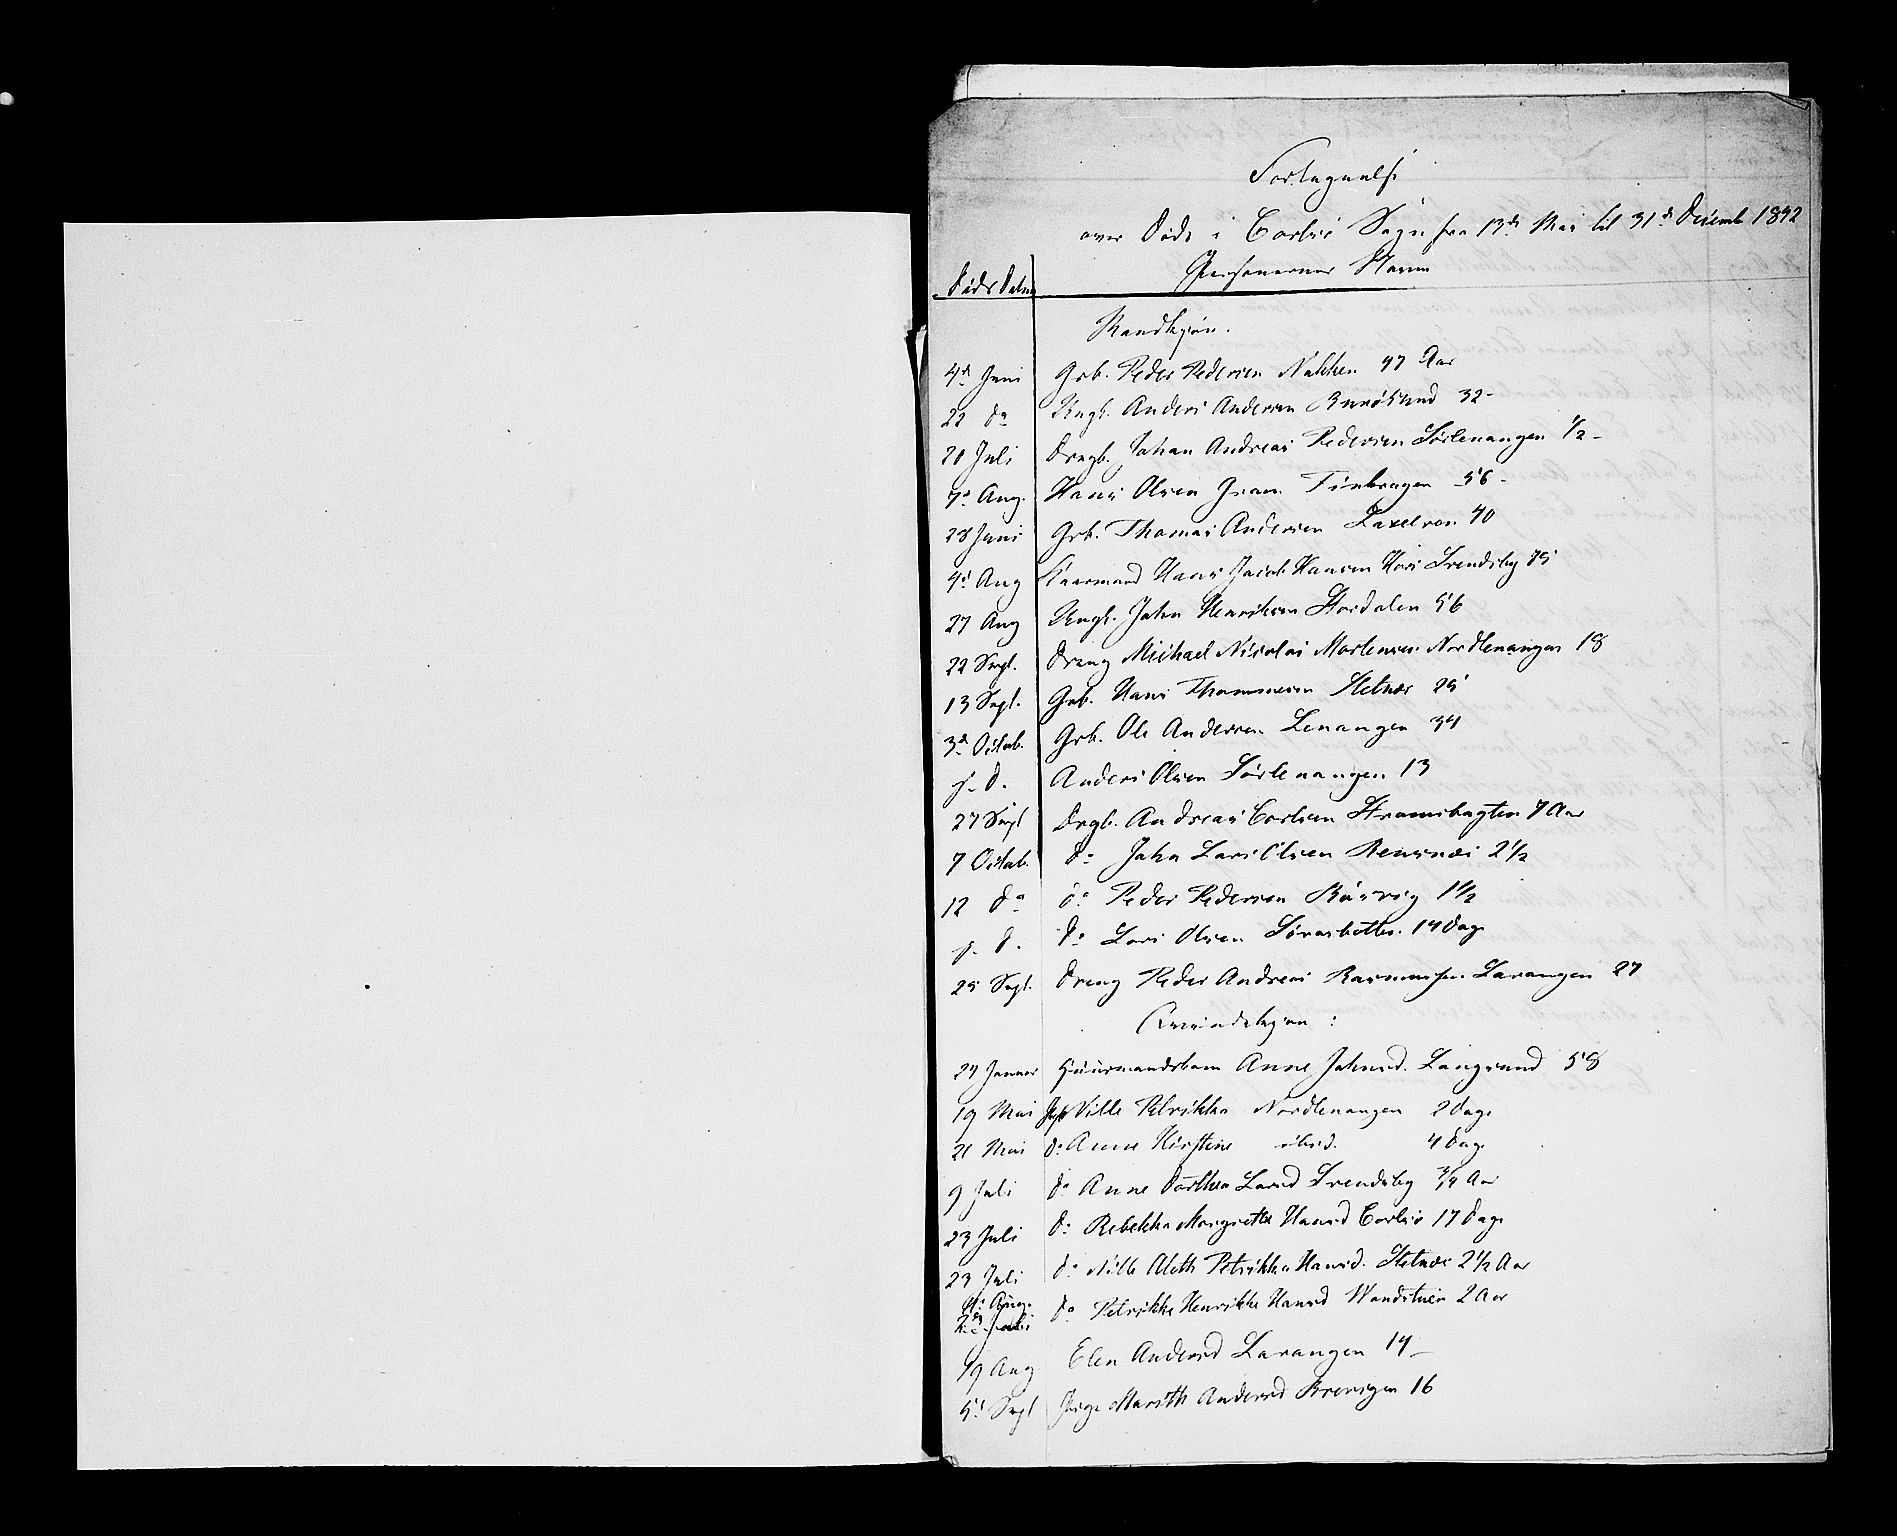 Fortegnelse
over Døde i Carlsø Sogn fra 13de Mai til 31te Decemb 1842
Døds Datum Personernes Navne
Mandkjøn.
4de Juni Grb. Peder Pedersen Nakken 47 Aar
22 do Ungk. Anders Andersen 32 -
20 Juli Drngb. Johan Andreas Pedersen Sørlenangen 1/2 -
7de Aug. Hans Olsen Gram. Finkrogen 56 -
28 Juni Grb. Thomas Andersen 40
4de Aug Kaarmand Hans Jacob Hansen Svendsby 75
27 Aug Ungk. John Henriksen Stordalen 56
22 Sept. Dreng Michael Nicolai Mortensen Nordlenangen 18
13 Sept. Grb. Hans Thommesen Stetnæs 25
3de Octob. Grb. Ole Andersen Lenangen 34
s. D. Anders Olsen Sørlenangen 13
27 Sept Drgb. Andreas Carlsen 7 Aar
7 Octob. do John Lars Olsen Reinsnæs 2 1/2
12 do do Peder Pedersen 1 1/2
s. d. do Lars Olsen 14 Dage
25 Sept. Dreng Peder Andreas Rasmussen Lavangen 27
Qvindekjøn :
27 Januar Huusmandskone Anne Johnsd. Langsund 58
19 Mai Nille Petrikka Nordlenangen 2 Dage
21 Mai do Anne Kirstine ibid. 4 Dage
9 Juli do Anne Dorthea Larsd Svendsby 3/4 Aar
23 Juli do Rebekka Margrethe Hansd Carlsø 17 Dage
23 Juli do Nille Aleth Petrikka Hansd. Stetnæs 2 1/2 Aar
4de Aug. do Petrikke Henrikke Hansd 2 Aar
19 Aug Elen Andersd Lavangen 14 -
5te Sept Pige Marith Andersd 16